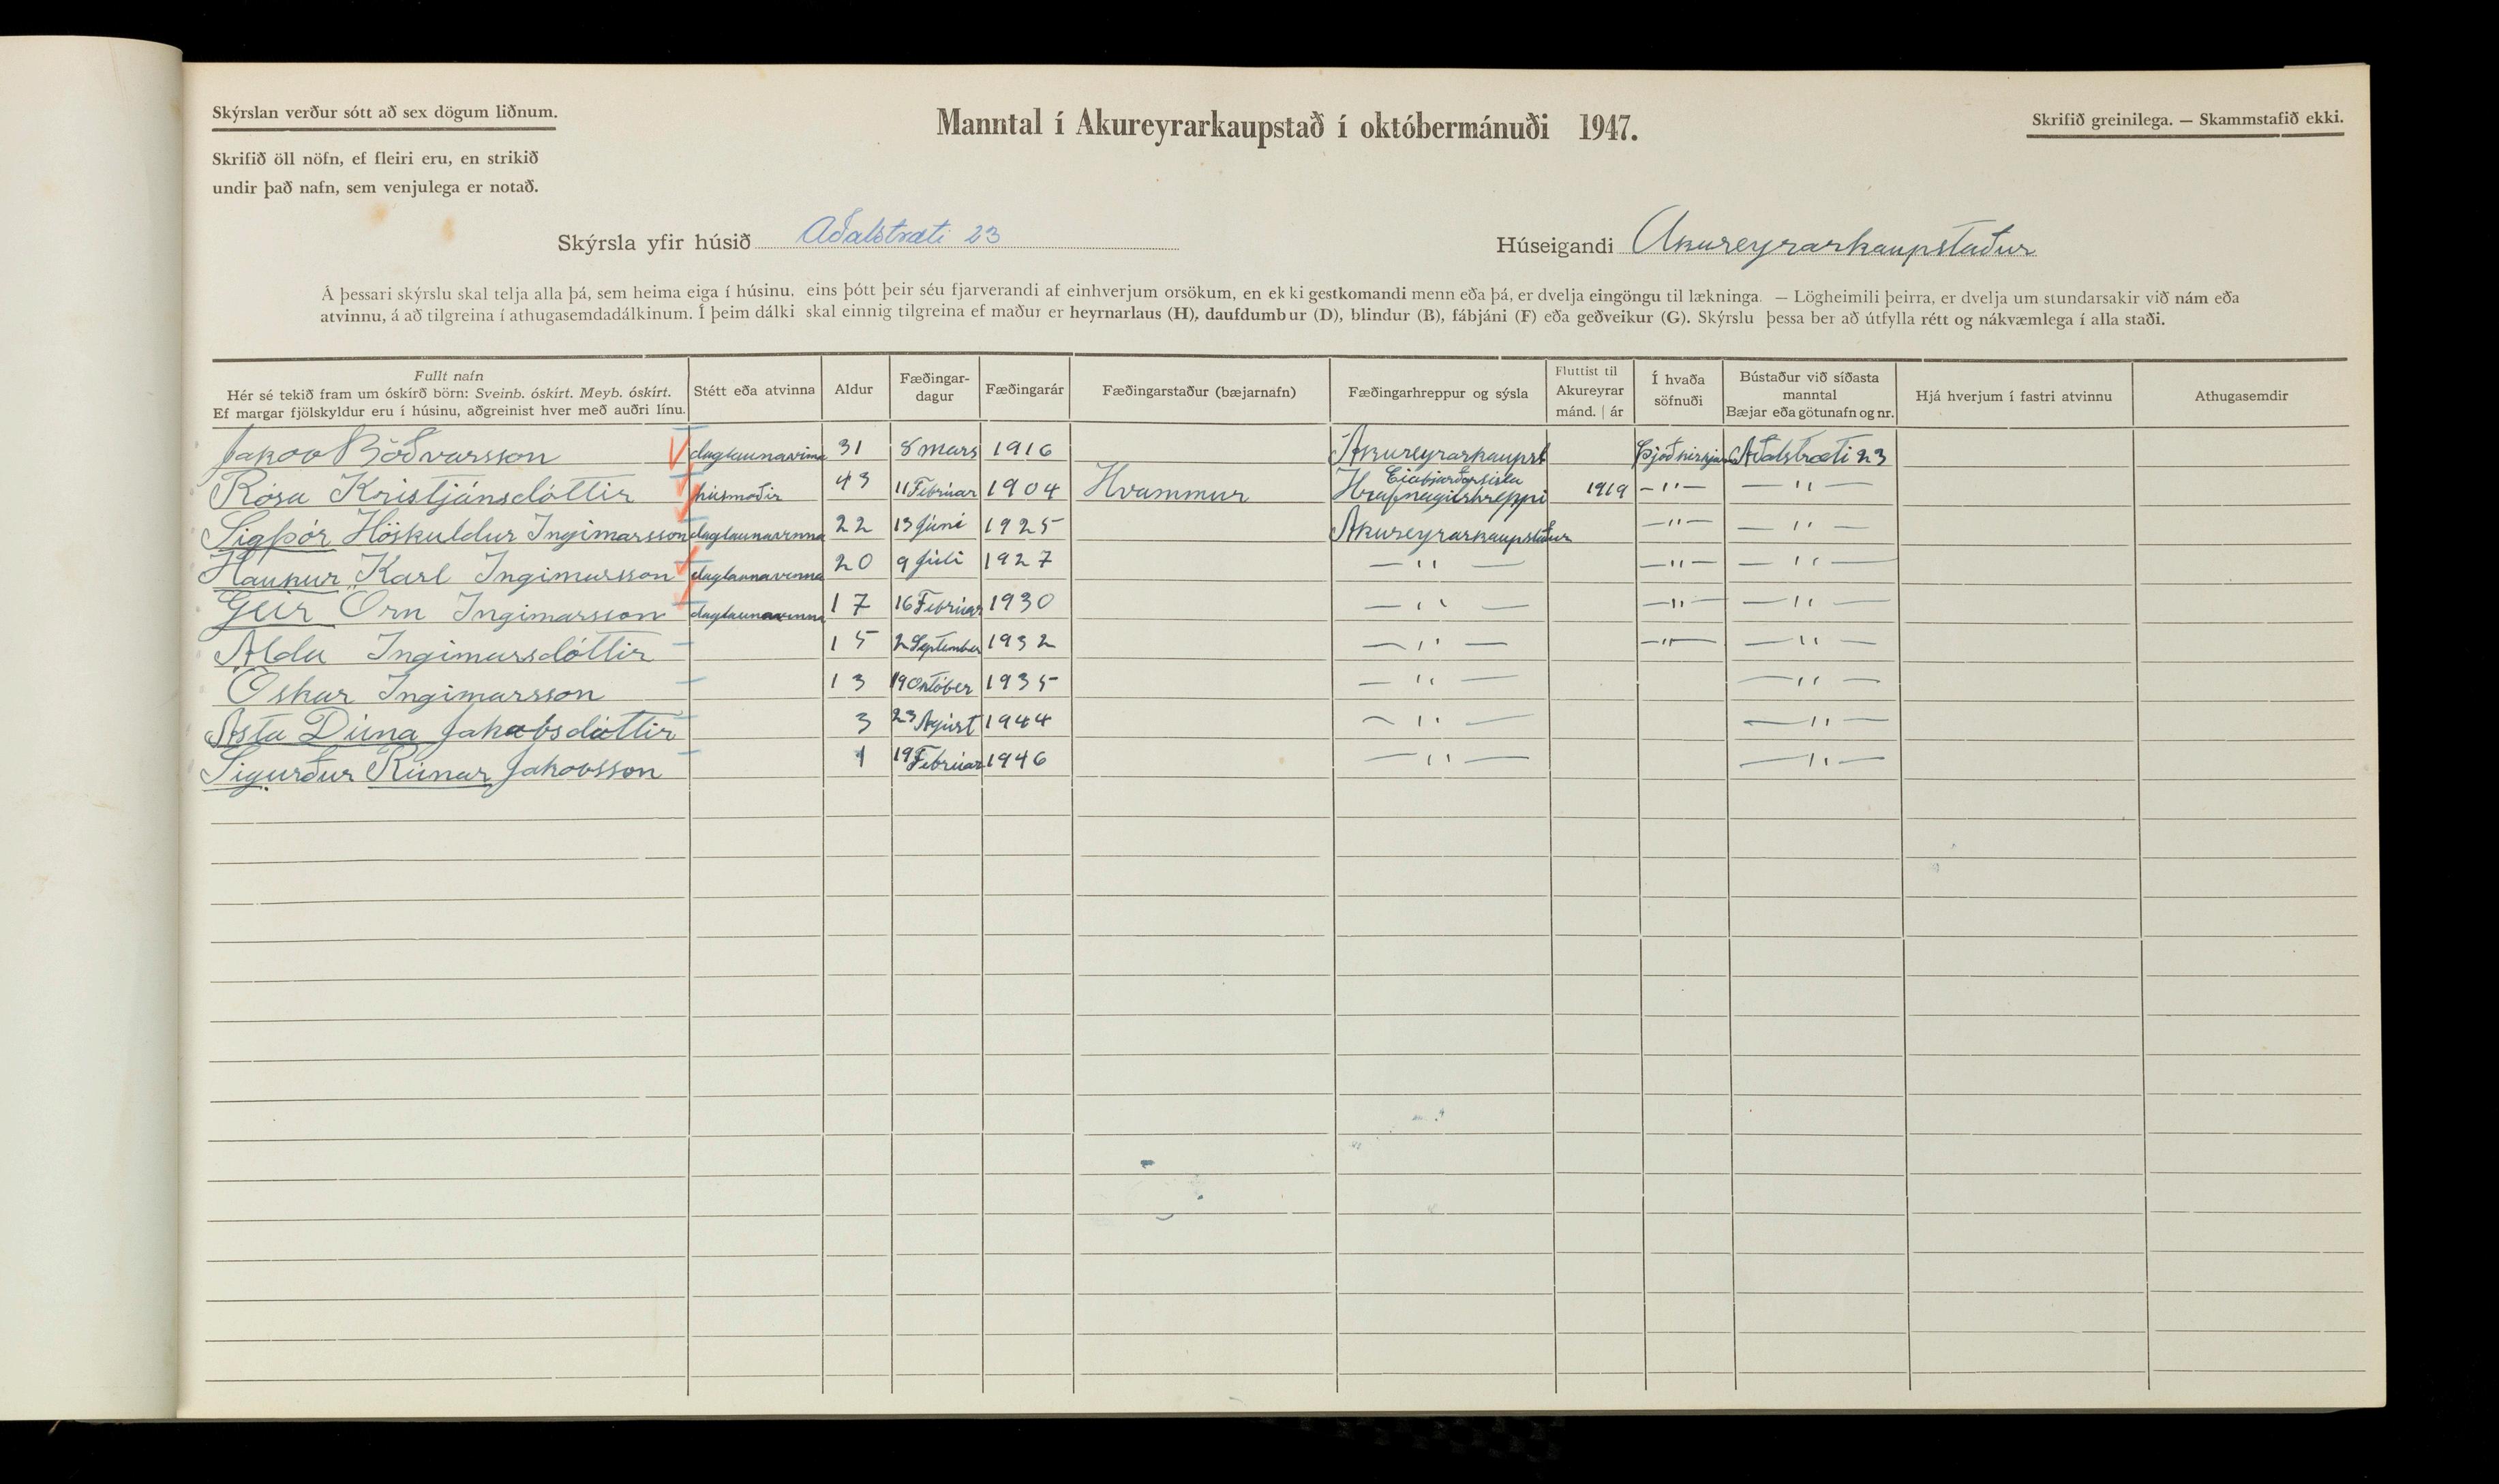 Skýrslan verður sótt að sex dögum liðnum.
Manntal í Akureyrarkaupstað í októbermánuði 1947.
Skrifið greinilega. — Skammstafið ekki.
Skrifið öll nöfn, ef fleiri eru, en strikið
undir það nafn, sem venjulega er notað.
Skýrsla yfir húsið Aðalstræti 23
Húseigandi Akureyrarkaupstaður
Á þessari skýrslu skal telja alla þá, sem heima eiga í húsinu, eins þótt þeir séu fjarverandi af einhverjum orsökum, en ekki gestkomandi menn eða þá, er dvelja eingöngu til lækninga. — Lögheimili þeirra, er dvelja um stundarsakir við nám eða
atvinnu, á að tilgreina í athugasemdadálkinum. Í þeim dálki skal einnig tilgreina ef maður er heyrnarlaus (H), daufdumbur (D), blindur (B), fábjáni (F) eða geðveikur (G). Skýrslu þessa ber að útfylla rétt og nákvæmlega í alla staði.
Fullt nafn
Hér sé tekið fram um óskírð börn: Sveinb. óskírt. Meyb. óskírt.
Ef margar fjölskyldur eru í húsinu, aðgreinist hver með auðri línu.
Stétt eða atvinna
Aldur
Fæðingar-
dagur
Fæðingarár
Fæðingarstaður (bæjarnafn)
Fæðingarhreppur og sýsla
Fluttist til
Akureyrar
mánd. | ár
Í hvaða
söfnuði
Bústaður við síðasta
manntal
Bæjar eða götunafn og nr.
Hjá hverjum í fastri atvinnu
Athugasemdir
Jakov Böðvarsson daglaunavinna 31 8 mars 1916 Akureyrarkaupst Þjóðkirkjan Aðalstræti 23
Rósa Kristjánsdóttir húsmóðir 43 11 Febrúar 1904 Hvammur Eiabjarðarsísla Hrafnagilshreppi 1919 — " — — " —
Sigþór Höskuldur Ingimarsson daglaunavinna 22 13 Júní 1925 Akureyrarkaupstaður — " — — " —
Haukur Karl Ingimarsson daglaunavinna 20 9 Júlí 1927 — " — — " — — " —
Geir Örn Ingimarsson daglaunavinna 17 16 Febrúar 1930 — " — — " — — " —
Alda Ingimarsdóttir 15 2 September 1932 — " — — " — — " —
Óskar Ingimarsson 13 19 Október 1935 — " — — " —
Ásta Dúna Jakobsdóttir 3 23 Ágúst 1944 — " — — " —
Sigurður Rúnar Jakovsson 1 19 Febrúar 1946 — " — — " —